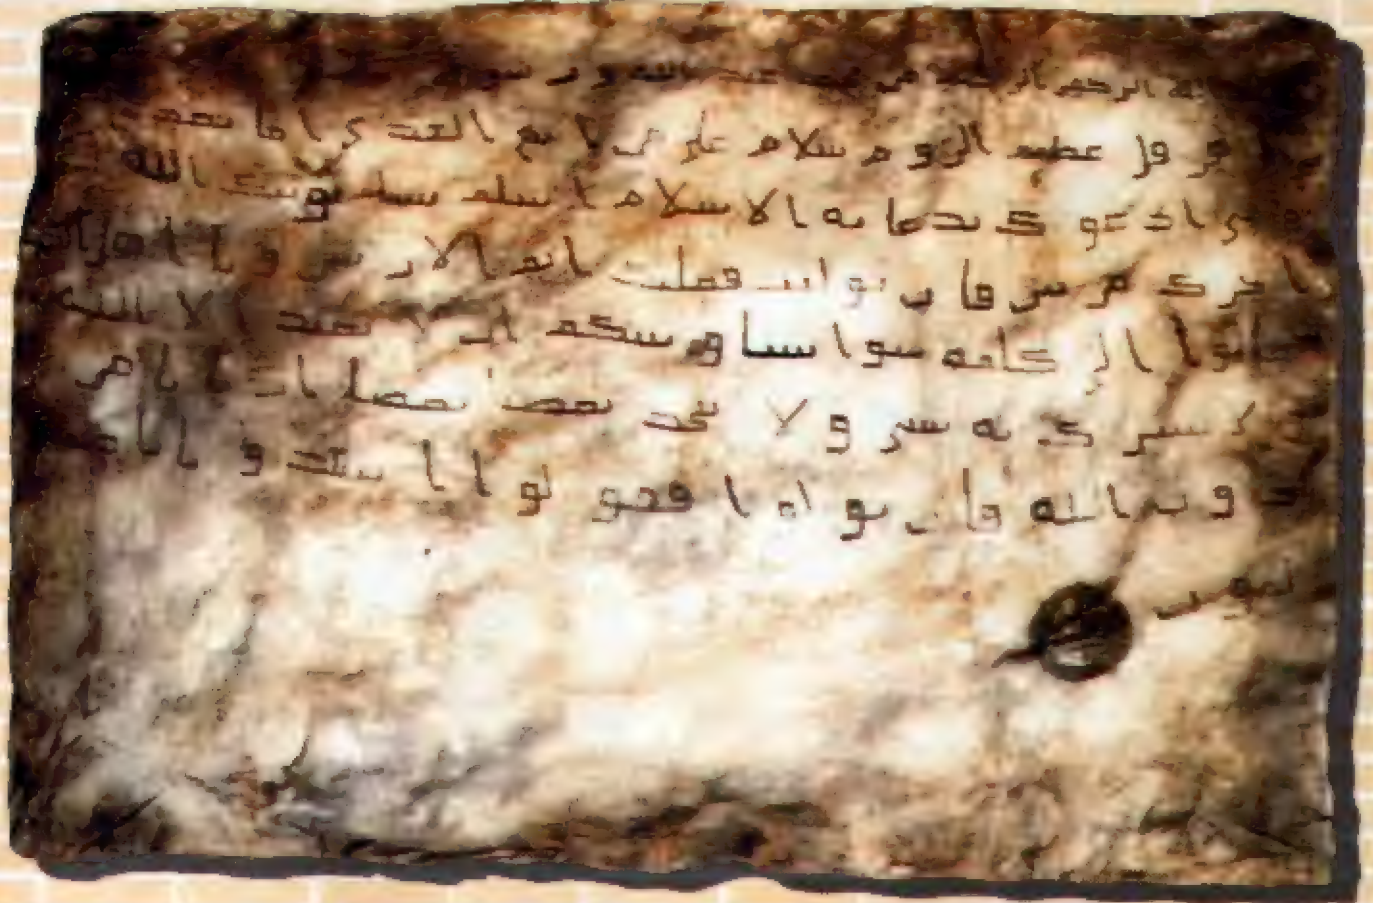 لله الرحمن الرحيم من محمد عبد الله ورسوله
هرقل عظيم الروم سلام على من اتبع الهدى اما بعد
فاني ادعوك بدعاية الاسلام اسلم تسلم يوتك الله
اجرك مرتين فان توليت فعليك اثم الاريسين ويا اهل
تعالوا الى كلمة سوا بيننا وبينكم ان لا نعبد الا الله
ولا نشرك به شي ولا يتخذ بعضنا بعضا اربابا من
دون الله فان تولوا فقولوا اشهدوا بانا
لمون